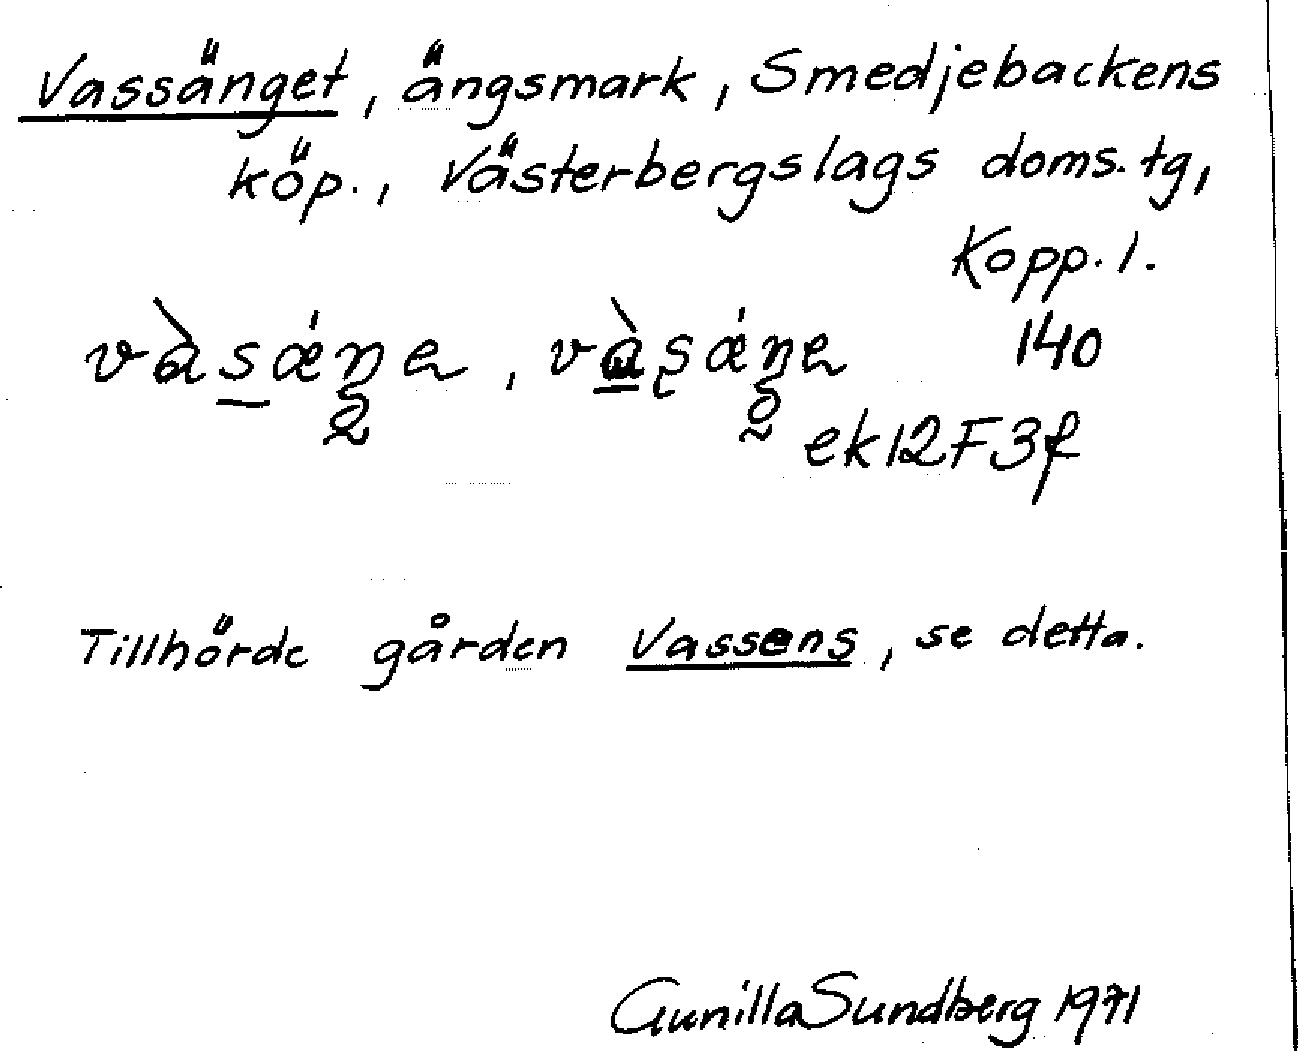 Vassänget, ängsmark, Smedjebackens
köp., Västerbergslags doms.tg,
Kopp. l.
140
ek12F3f
Tillhörde gården Vassens, se detta.
Gunilla Sundberg 1971